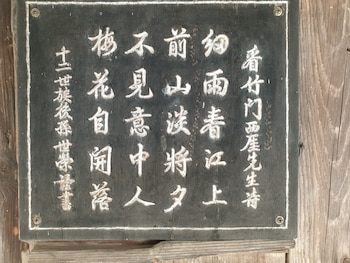 看竹门西厓先生诗
细雨春江上
前山淡將夕
不見意中人
梅花自開落
十二世族後孫世榮謹書